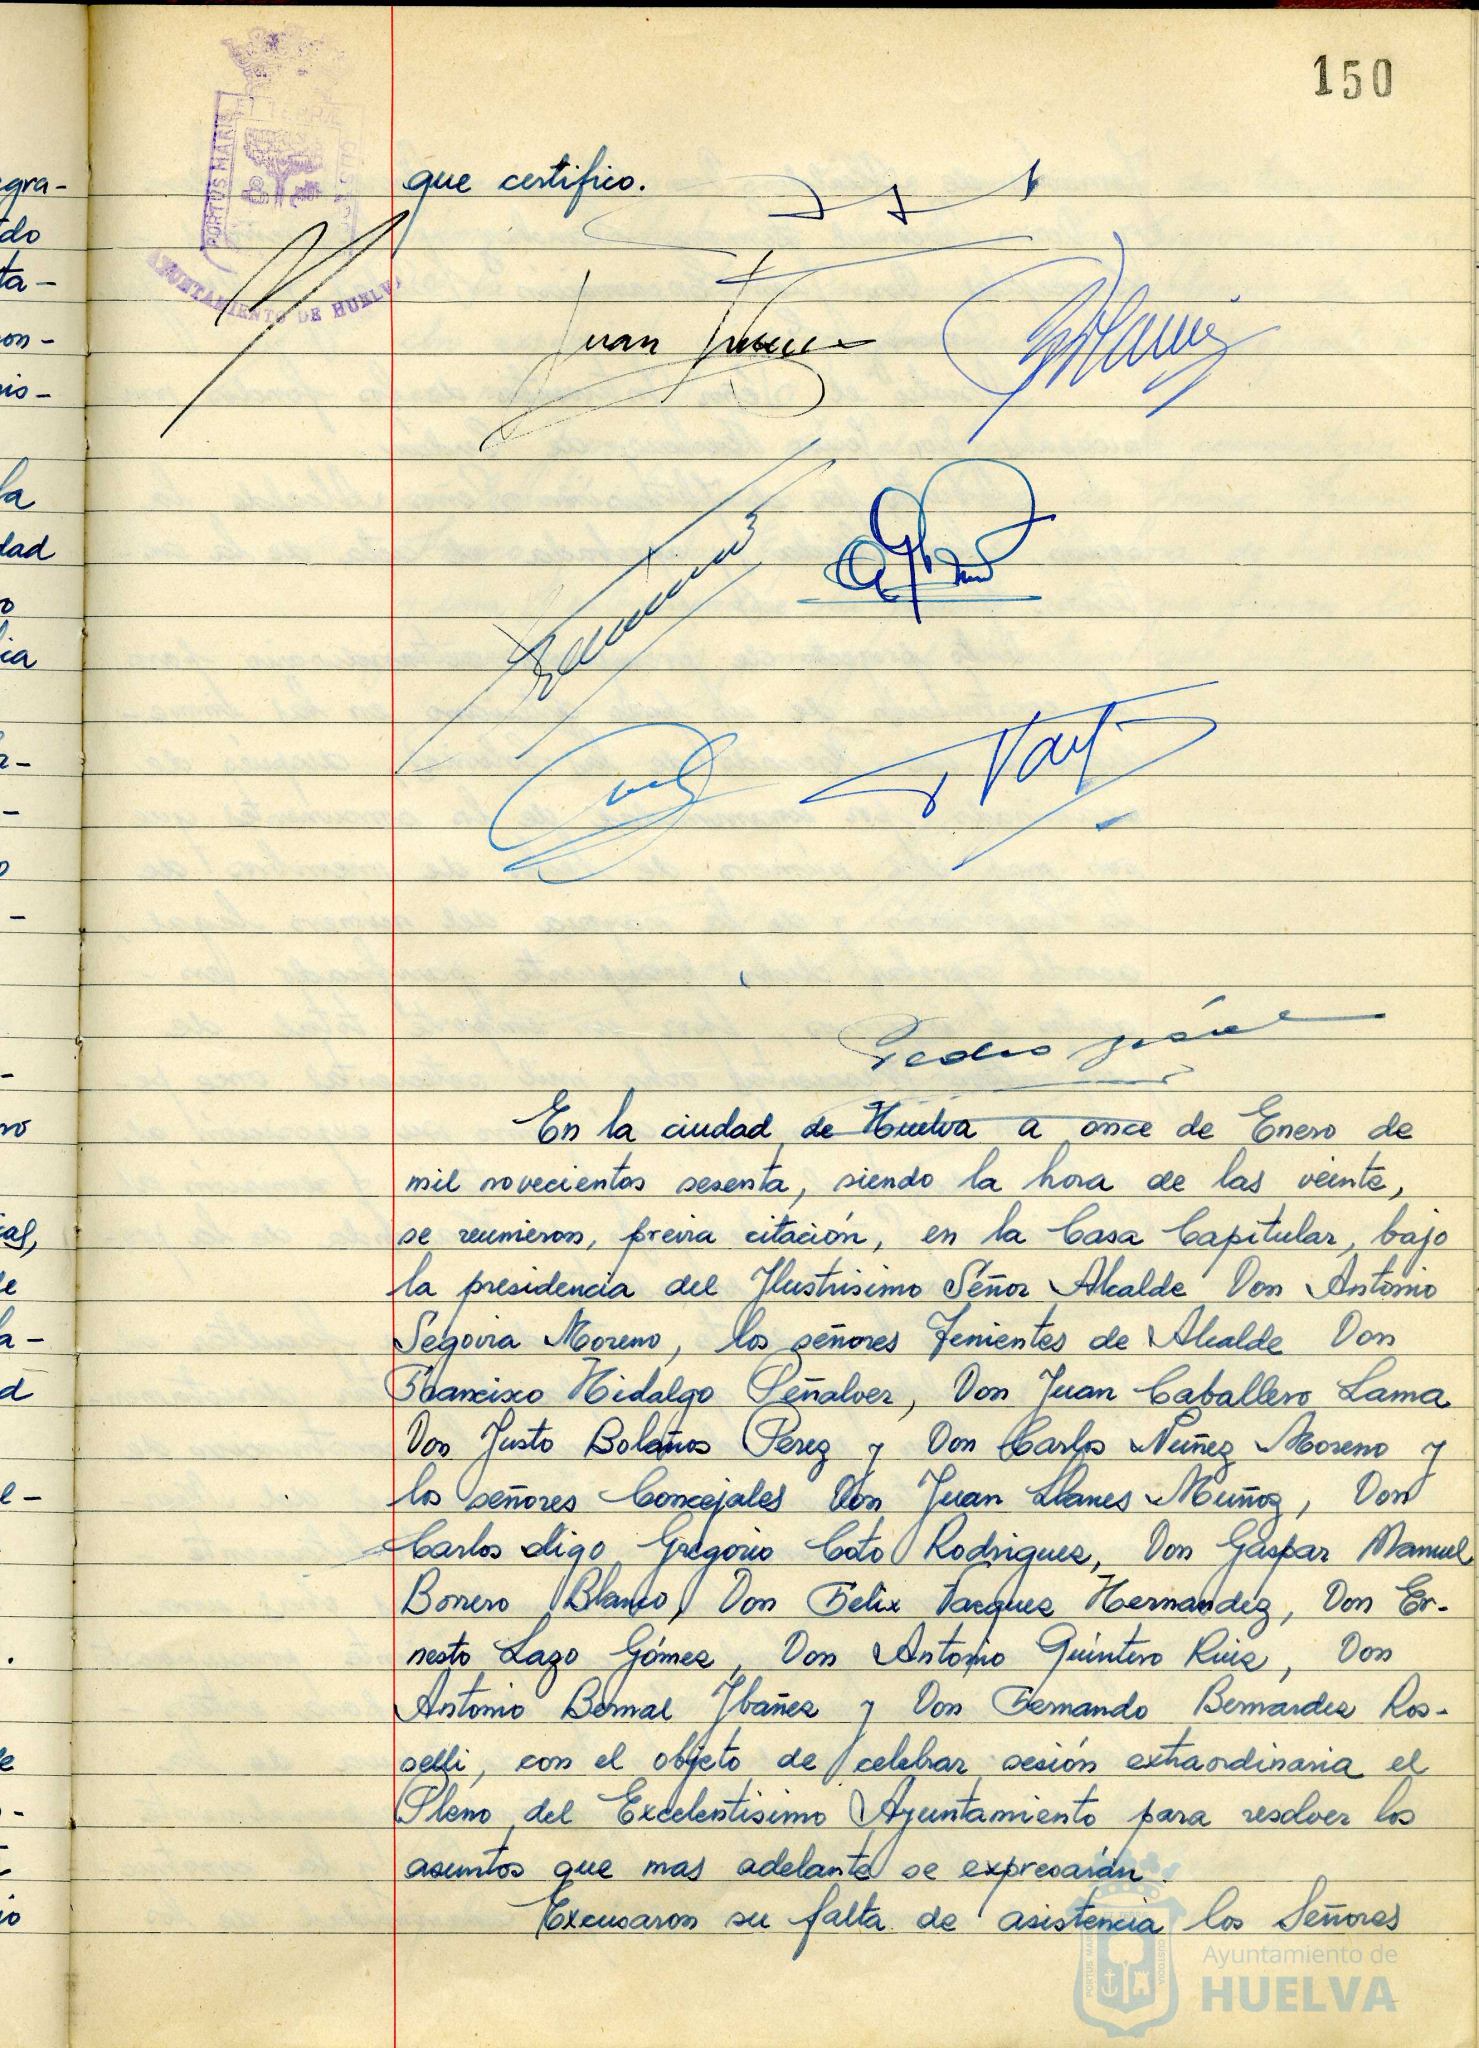 150
PORTUS MARIS ET TERRÆ CUSTODIA
AYUNTAMIENTO DE HUELVA
que certifico.
Juan
Pedro
En la ciudad de Huelva a once de Enero de
mil novecientos sesenta, siendo la hora de las veinte,
se reunieron, previa citación, en la Casa Capitular, bajo
la presidencia del Ilustrisimo Señor Alcalde Don Antonio
Segovia Moreno, los señores Tenientes de Alcalde Don
Francisco Hidalgo Peñalver, Don Juan Caballero Lama
Don Justo Bolaños Perez y Don Carlos Nuñez Moreno y
los señores Concejales Don Juan Llanes Muñoz, Don
Carlos digo Gregorio Coto Rodriguez, Don Gaspar Manuel
Borrero Blanco, Don Felix Vazquez Hernandez, Don Er-
nesto Lazo Gómez, Don Antonio Quintero Ruiz, Don
Antonio Bernal Ibañez y Don Fernando Bernardez Ros-
selli, con el objeto de celebrar sesión extraordinaria el
Pleno del Excelentisimo Ayuntamiento para resolver los
asuntos que mas adelante se expresarán.
Excusaron su falta de asistencia los Señores
Ayuntamiento de
HUELVA